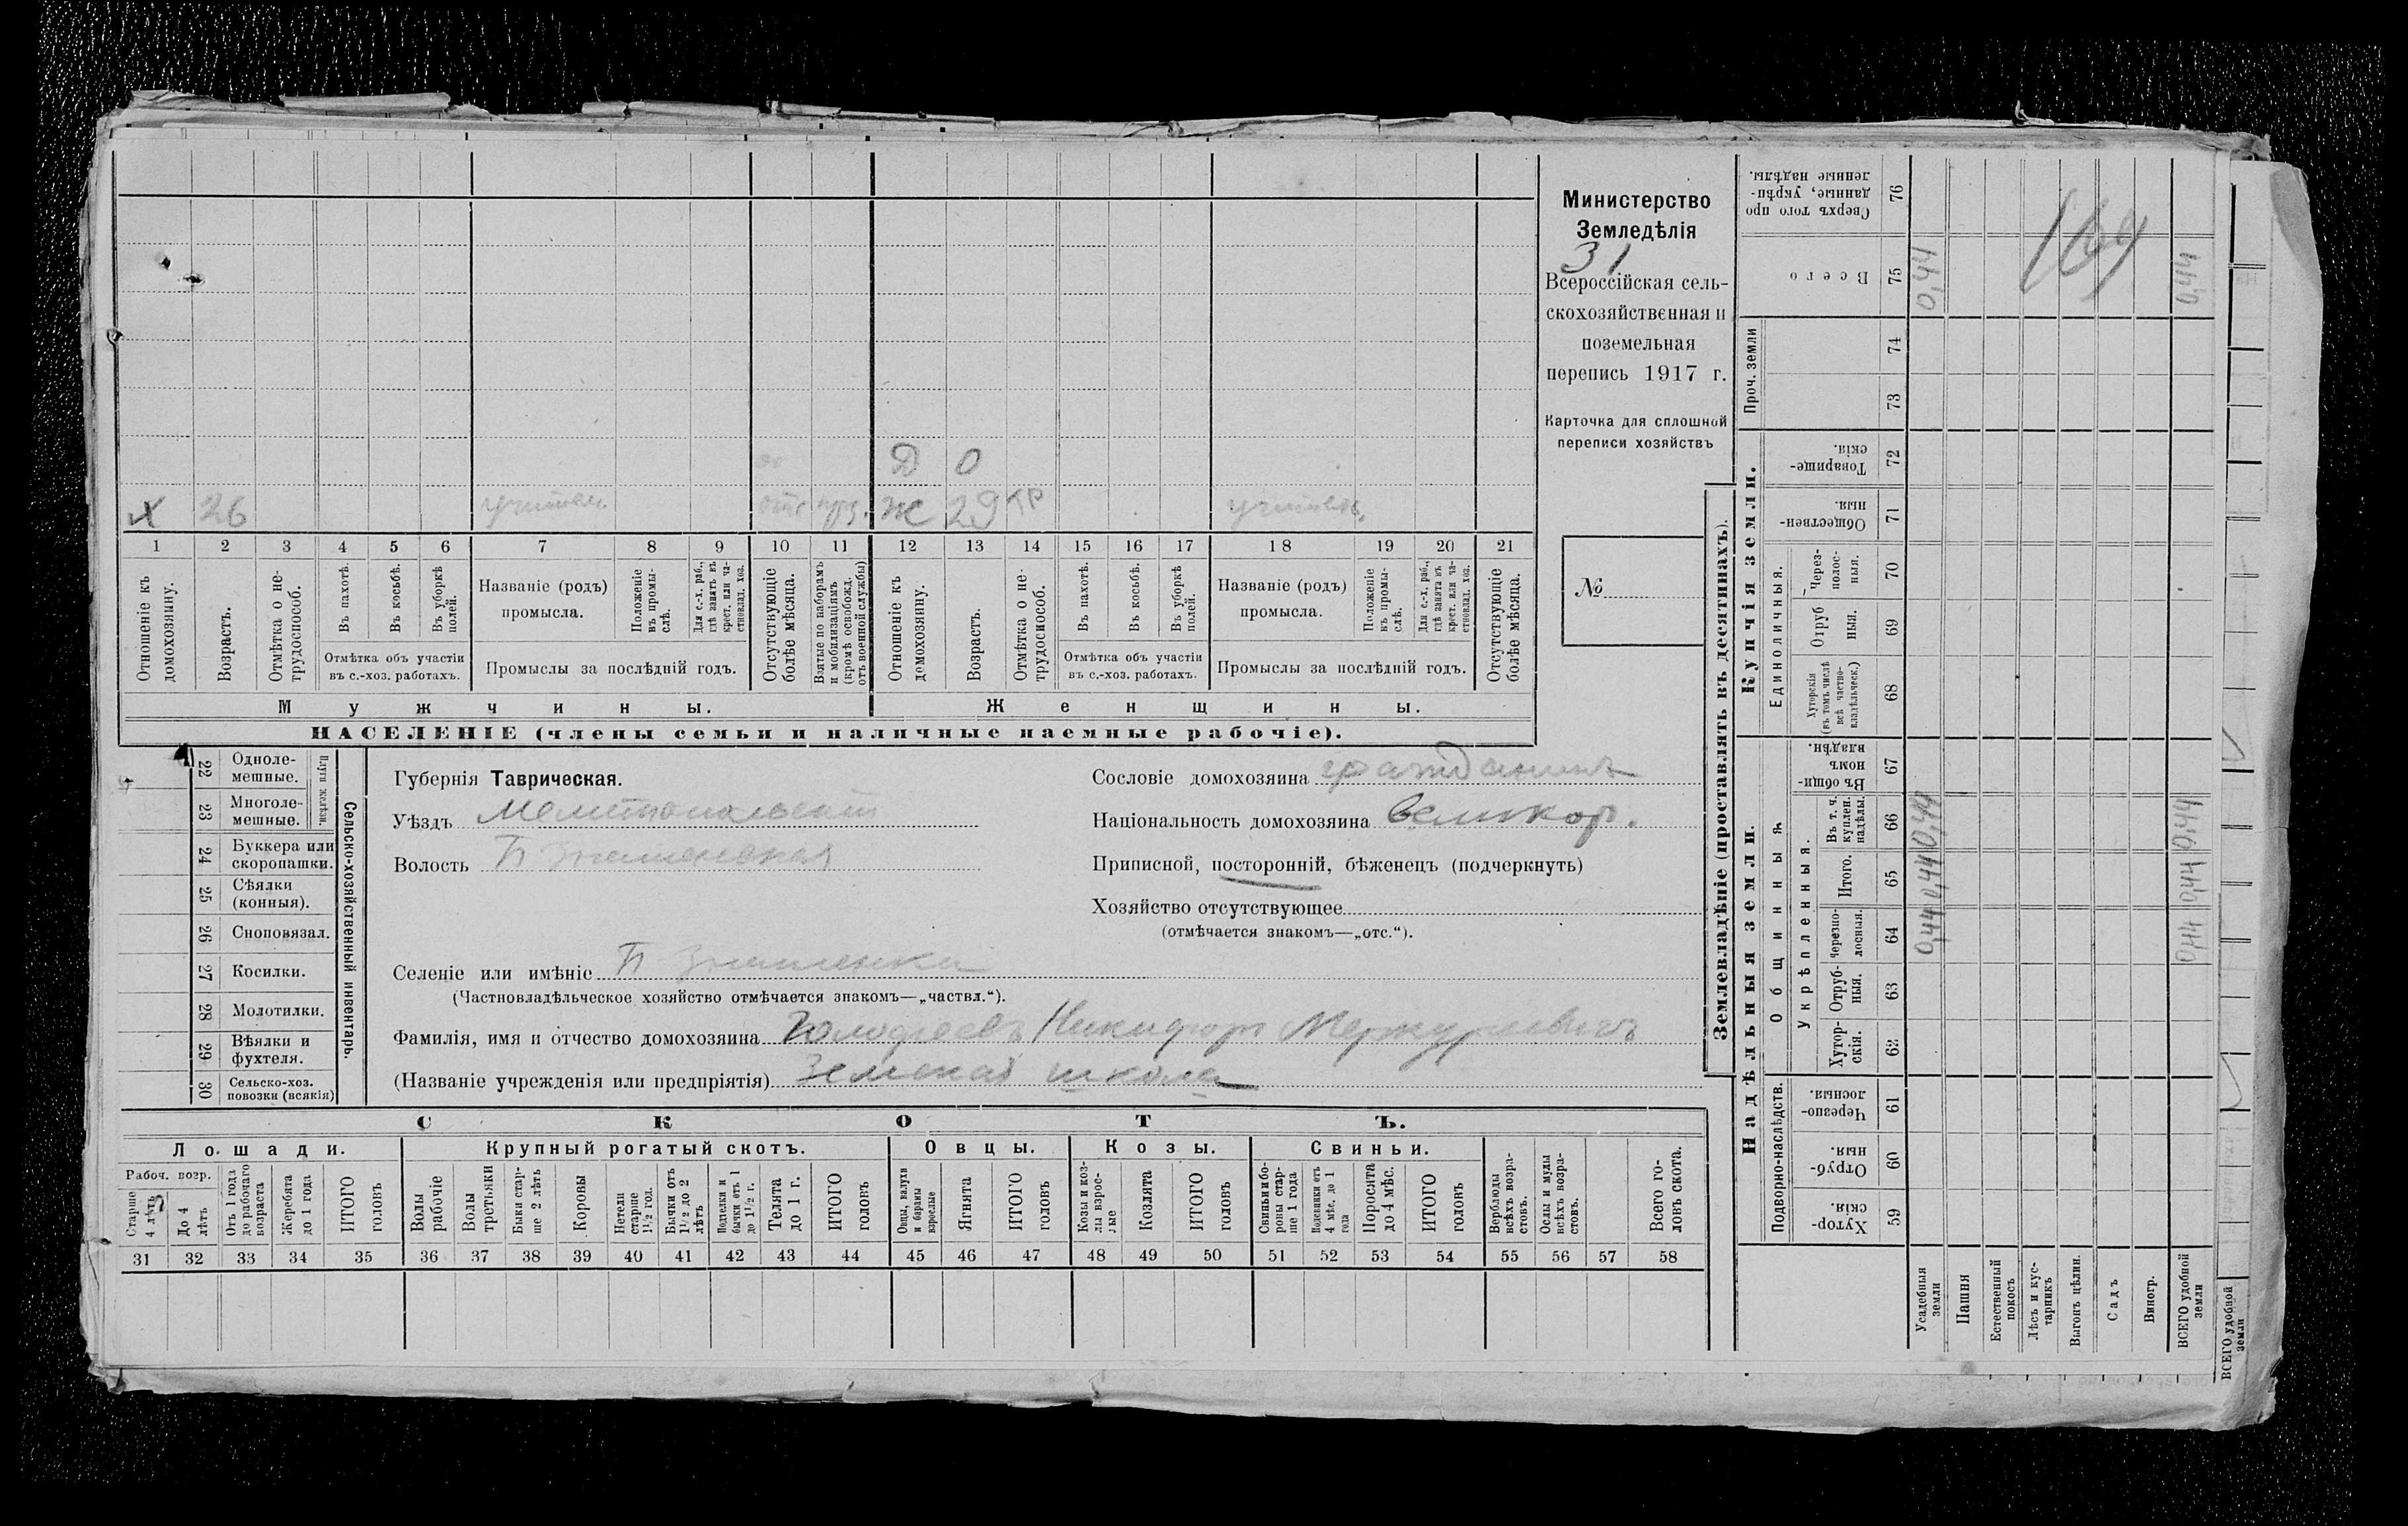 Министерство
Земледѣлія
31
Всероссійская сель-
скохозяйственная и
поземельная
перепись 1917 г.
Карточка для сплошной
переписи хозяйствъ
№
Д 0
х 26 учитель отс Ж 29 гр учитель.
1 2 3 4 5 6 7 8 9 10 11 12 13 14 15 16 17 18 19 20 21
Отношеніе къ домохозяину.
Возрастъ.
Отмѣтка о не-трудоспособ.
Въ пахотѣ.
Въ косьбѣ.
Въ уборкѣ полей.
Отмѣтка объ участіи
въ с.-хоз. работахъ.
Названіе (родъ)
промысла.
Положеніе въ промы-слѣ.
Для с.-х. раб., гдѣ занятъ въ крест. или ча-стновлад. хоз.
Промыслы за послѣдній годъ.
Отсутствующіе болѣе мѣсяца.
Взятые по наборамъ и мобилизаціямъ (кромѣ освобожд. отъ военной службы)
Отношеніе къ домохозяину.
Возрастъ.
Отмѣтка о не-трудоспособ.
Въ пахотѣ.
Въ косьбѣ.
Въ уборкѣ полей.
Отмѣтка объ участіи
въ с.-хоз. работахъ.
Названіе (родъ)
промысла.
Положеніе къ промы-слѣ.
Для с.-х. раб., гдѣ занята въ крест. или ча-стновлад. хоз.
Промыслы за послѣдній годъ.
Отсутствующіе болѣе мѣсяца.
Мужчины. Женщины.
НАСЕЛЕНІЕ (члены семьи и наличные наемные рабочіе).
22 Одноле-мешные.
23 Многоле-мешные.
Плуги желѣзн.
24 Буккера или скоропашки.
25 Сѣялки (конныя).
26 Сноповязал.
27 Косилки.
28 Молотилки.
29 Вѣялки и фухтеля.
30 Сельско-хоз. повозки (всякія)
Сельско-хозяйственный инвентарь.
Губернія Таврическая.
Уѣздъ Мелитопольскій
Волость Б Знаменская
Сословіе домохозяина гражданинъ
Національность домохозяина великор.
Приписной, посторонній, бѣженецъ (подчеркнуть)
Хозяйство отсутствующее
(отмѣчается знакомъ—„отс.“).
Селеніе или имѣніе Б Знаменка
(Частновладѣльческое хозяйство отмѣчается знакомъ—„частвл.“).
Фамилія, имя и отчество домохозяина Никифоръ Меркурьевичъ
(Названіе учрежденія или предпріятія) Земская школа
СКОТЪ.
Лошади. Крупный рогатый скотъ. Овцы. Козы. Свиньи.
Рабоч. возр.
Старше 4 лѣтъ
До 4 лѣтъ
Отъ 1 года до рабочаго возраста
Жеребята до 1 года
ИТОГО головъ
Волы рабочіе
Волы третьяки
Быки стар-ше 2 лѣтъ
Коровы
Нетели старше 1½ год.
Бычки отъ 1½ до 2 лѣтъ
Подтелки и бычки отъ 1 до 1½ г.
Телята до 1 г.
ИТОГО головъ
Овцы, валухи и бараны взрослые
Ягнята
ИТОГО головъ
Козы и коз-лы взрос-лые
Козлята
ИТОГО головъ
Свиньи и бо-ровы стар-ше 1 года
Подсвинки отъ 4 мѣс. до 1 года
Поросята до 4 мѣс.
ИТОГО головъ
Верблюды всѣхъ возра-стовъ.
Ослы и мулы всѣхъ возра-стовъ.
Всего го-ловъ скота.
31 32 33 34 35 36 37 38 39 40 41 42 43 44 45 46 47 48 49 50 51 52 53 54 55 56 57 58
Землевладѣніе (проставлять въ десятинахъ).
Надѣльныя земли. Купчія земли. Проч. земли
Подворно-наслѣдств.
Общинныя.
Укрѣпленныя.
Единоличныя.
Хутор-скія. 59
Отруб-ныя. 60
Черезпо-лосныя. 61
Хутор-скія. 62
Отруб-ныя. 63
Черезпо-лосныя. 64
Итого. 65
Въ т. ч. куплен. надѣлы. 66
Въ общи-номъ владѣн. 67
Хуторскія (въ томъ числѣ всѣ частно-владѣльческ.) 68
Отруб ныя. 69
Через-полос-ныя. 70
Обществен-ныя. 71
Товарище-скія. 72
73
74
Всего 75
Сверхъ того про данные, укрѣп-ленные надѣлы. 76
169
Усадебныя земли 0,44 0,44 0,44 0,44
Пашня
Естественный покосъ
Лѣсъ и кус-тарникъ
Выгонъ цѣлин.
Садъ
Виногр.
ВСЕГО удобной земли 0,44 0,44 0,44 0,44
ВСЕГО удобной земли